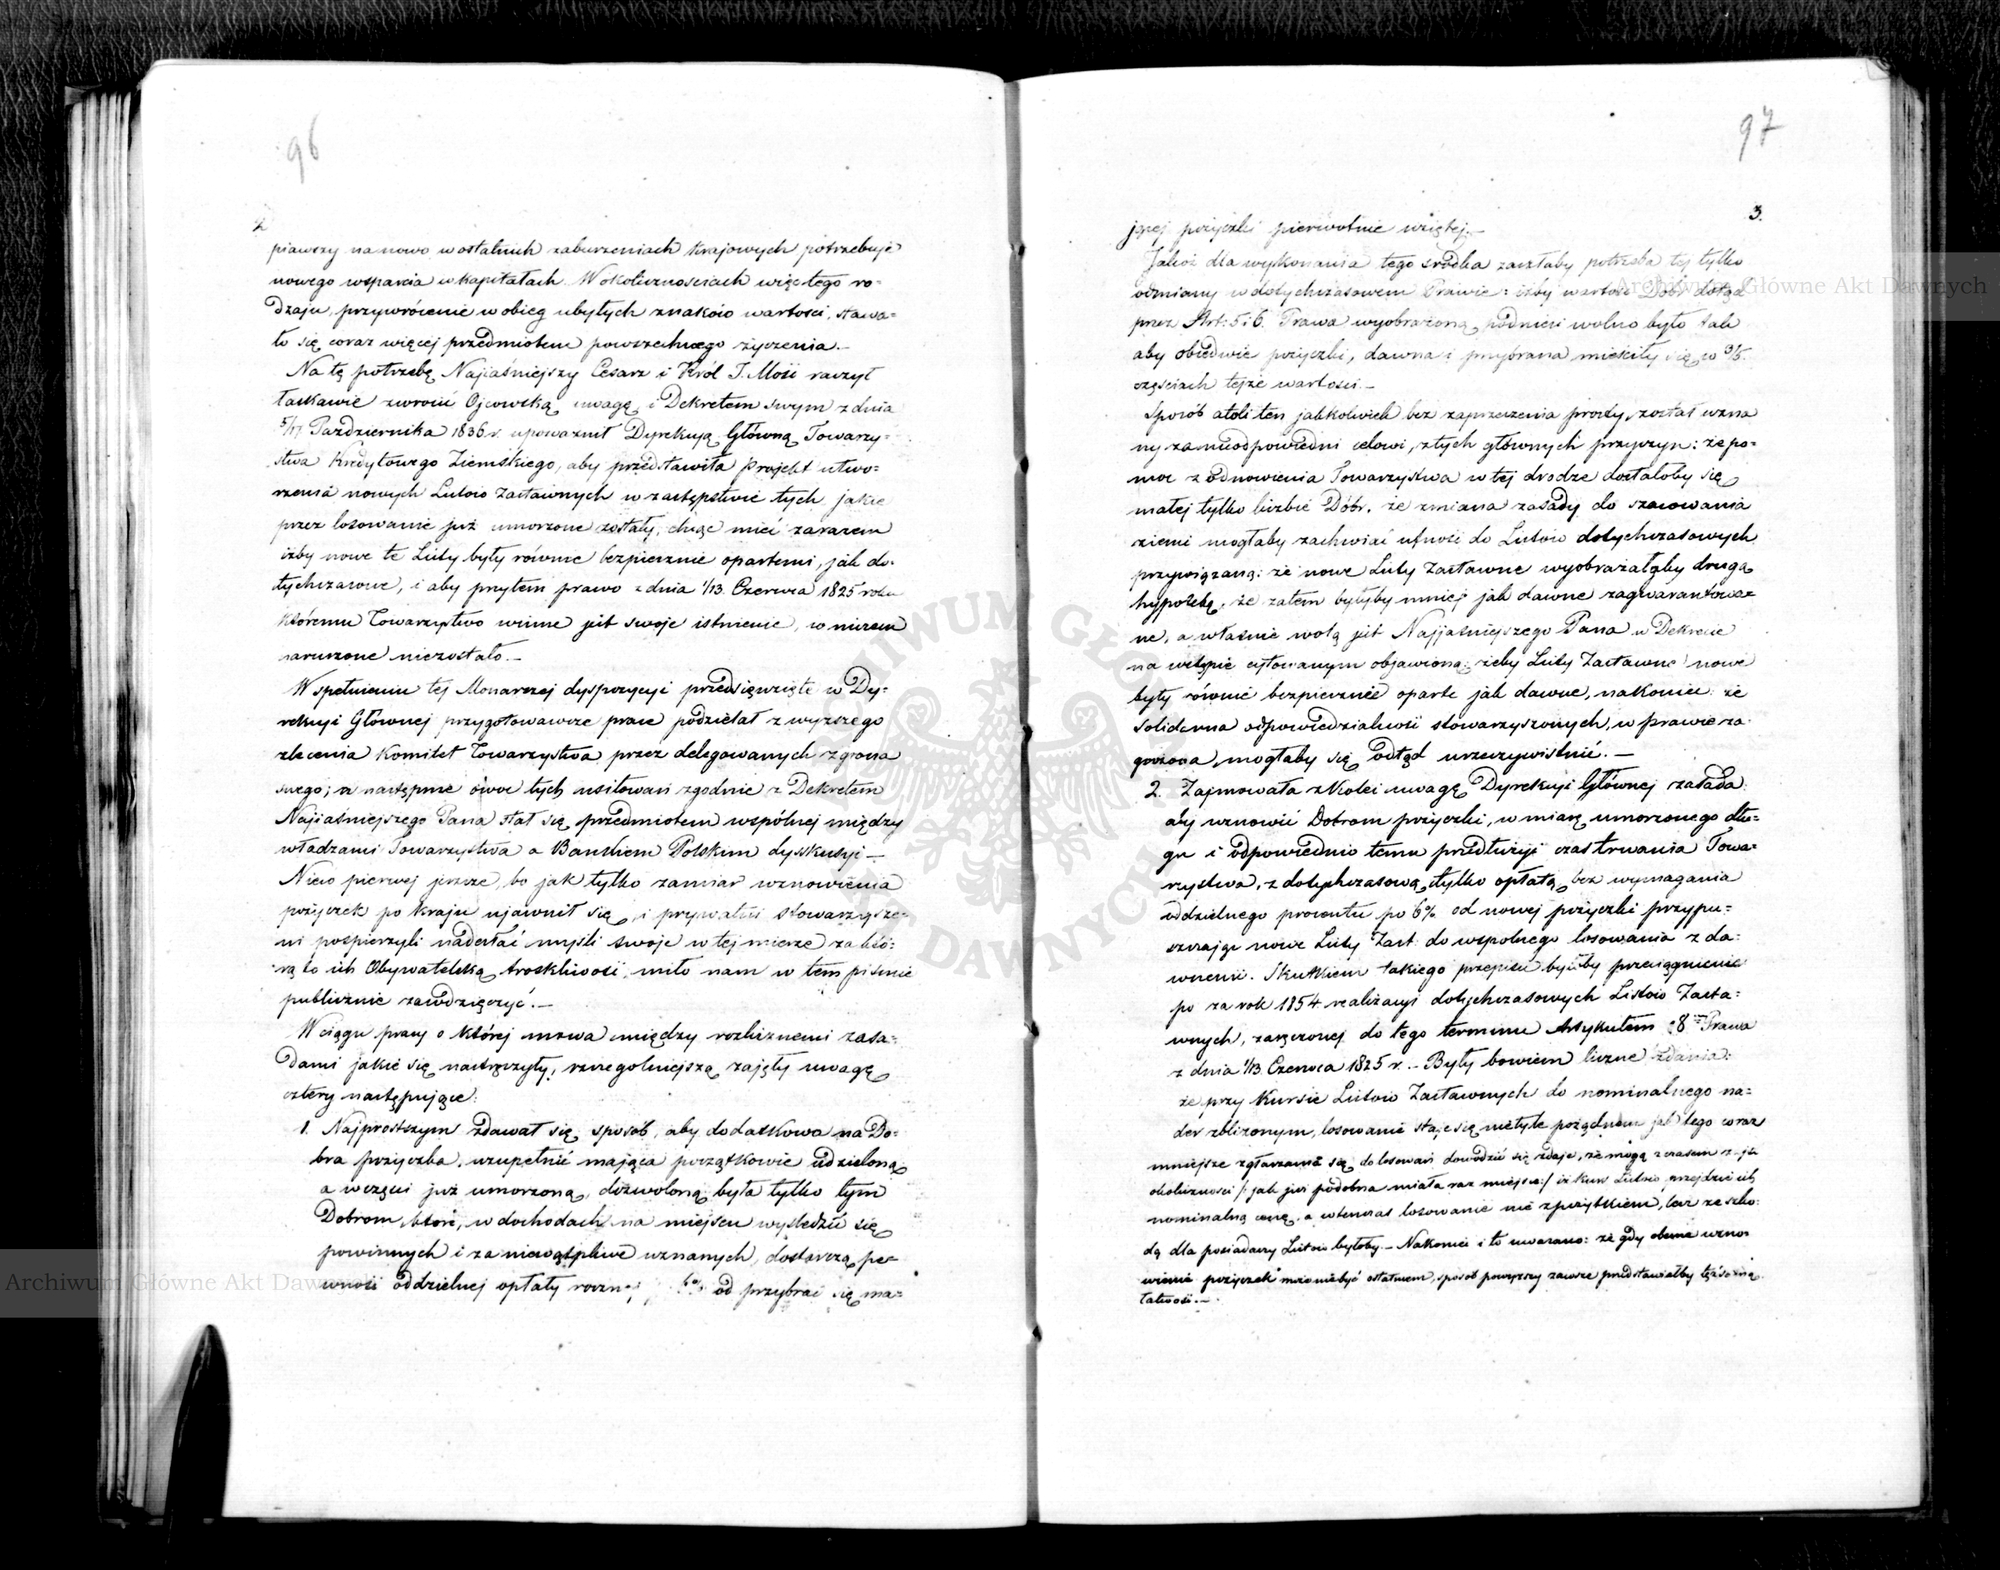 96
2
piawszy na nowo w ostatnich zaburzeniach krajowych potrzebuje
nowego wsparcia w kapitałach. W okolicznościach więc tego ro=
dzaju, przywrócenie w obieg ubyłych znaków wartości, stawa=
ło się coraz więcej przedmiotem powszechnego życzenia.—
Na tę potrzebę Najiaśniejszy Cesarz i Król J. Mość raczył
łaskawie zwrócić Ojcowską uwagę i Dekretem swym z dnia
5/17 Pazdziernika 1836 r. upoważnił Dyrekcyą Główną Towarzy=
stwa Kredytowego Ziemskiego, aby przedstawiła projekt utwo=
rzenia nowych Listów Zastawnych w zastępstwie tych jakie
przez losowanie już umorzone zostały, chcąc mieć zarazem
iżby nowe te Listy były równie bezpiecznie opartemi, jak do=
tychczasowe, i aby przytem prawo z dnia 1/13 Czerwca 1825 roku
któremu Towarzystwo winne jest swoje istnienie, w niczem
naruszone niezostało.—
W spełnieniu tej Monarszej dyspozycyi przedsięwzięte w Dy=
rekcyi Głównej przygotowawcze prace podzielał z wyższego
zlecenia Komitet Towarzystwa przez delegowanych z grona
swego; a następnie owoc tych usiłowań zgodnie z Dekretem
Najiaśniejszego Pana stał się przedmiotem wspólnej między
władzami Towarzystwa a Bankiem Polskim dyskusyi —
Nieco pierwej jeszcze, bo jak tylko zamiar wznowienia
pożyczek po kraju ujawnił się, i prywatni stowarzysze=
ni pospieszyli nadesłać myśli swoje w tej mierze za któ=
rą to ich Obywatelską troskliwość, miło nam w tem piśmie
publicznie zawdzięczyć.—
W ciągu pracy o której mowa między rozlicznemi zasa=
dami jakie się nastręczyły, szczególniejszą zajęły uwagę
cztery następujące:
1. Najprostszym zdawał się sposób, aby dodatkowa na Do=
bra pożyczka, uzupełnić mająca początkowie udzieloną
a w części już umorzoną, dozwoloną była tylko tym
Dobrom które, w dochodach na miejscu wyśledzić się
powinnych i za niewątpliwe uznanych, dostarczą pe=
wność oddzielnej opłaty rocznej 6% od przybrać się ma=
97
3.
jącej pożyczki pierwotnie wziętej.—
Jakoż dla wykonania tego srodka zaszłaby potrzeba tej tylko
odmiany w dotychczasowem Prawie: iżby wartość Dóbr dotąd
przez Art: 5 i 6. Prawa wyobrażoną podnieść wolno było tak
aby obiedwie pożyczki, dawna i przybrana mieściły się w 3/5
częściach tejże wartości.—
Sposób atoli ten jakkolwiek bez zaprzeczenia prosty, został uzna
ny za nieodpowiedni celowi, z tych głównych przyczyn: że po=
moc z odnowienia Towarzystwa w tej drodze dostałoby się
małej tylko liczbie Dóbr, że zmiana zasady do szacowania
ziemi mogłaby zachwiać ufność do Listów dotychczasowych
przywiązaną: że nowe Listy Zastawne wyobrażałyby drugą
hypotekę, że zatem byłyby mniej jak dawne zagwarantowa=
ne, a właśnie wolą jest Najjaśniejszego Pana w Dekrecie
na wstępie cytowanym objawioną: żeby Listy Zastawne nowe
były równie bezpiecznie oparte jak dawne, nakoniec: że
Solidarna odpowiedzialność stowarzyszonych, w prawie za=
grożona, mogłaby się odtąd urzeczywistnić.—
2. Zajmowała z kolei uwagę Dyrekcyi Głównej zasada:
aby wznowić Dobrom pożyczki, w miarę umorzonego dłu=
gu i odpowiednio temu przedłużyć czas trwania Towa=
rzystwa, z dotychczasową tylko opłatą bez wymagania
oddzielnego procentu po 6% od nowej pożyczki przypu=
szczając nowe Listy Zast: do wspólnego losowania z da=
wnemi. Skutkiem takiego przepisu byłoby przeciągnienie
po za rok 1854 realizacyi dotychczasowych Listów Zasta=
wnych, zaręczonej do tego terminu Artykułem 8 Prawa
z dnia 1/13 Czerwca 1825 r.— Były bowiem liczne zdania:
że przy kursie Listów Zastawnych do nominalnego na=
der zbliżonym, losowanie staje się nietyle pożądanem jak tego coraz
mniejsze zgłaszanie się do losowań dowodzić się zdaje, że mogą z czasem zajść
okoliczności /: jak już podobna miała raz miejsce:/ iż kurs Listów przejdzie ich
nominalną cenę, a wtenczas losowanie nie z pożytkiem, lecz ze szko=
dą dla posiadaczy Listów byłoby.— Nakoniec i to uważano: że gdy obecne wzno=
wienie pożyczek może niebyć ostatniem, sposób powyższy zawsze przedstawiałby tęż samą
łatwość.—